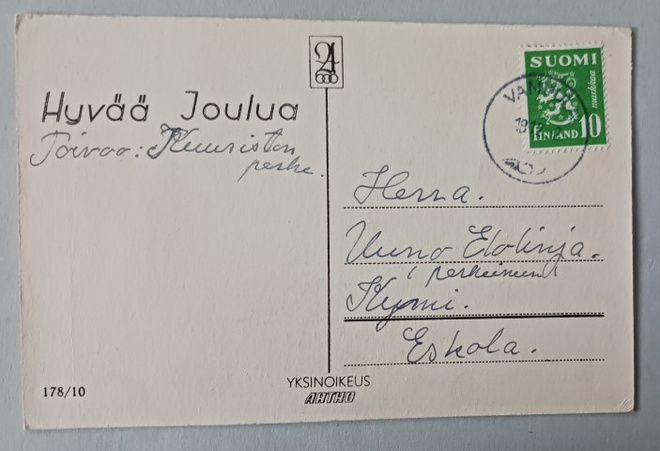 Hyvää Joulua
Toivoo: Kuuriston
perhe.
SUOMI
markkaa
FINLAND 10
Herra.
Uuno Elolinja.
perheineen
Kymi.
Eskola.
178/10
YKSINOIKEUS
AHTHO